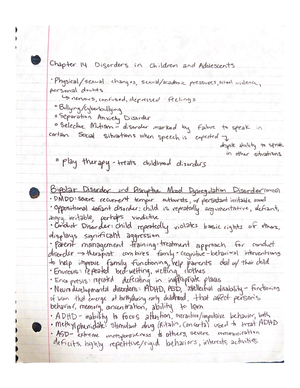 Chapter 14 Disorders in Children and Adolescents
• Physical/sexual changes, social/academic pressures, school violence,
personal doubts
↳ nervous, confused, depressed feelings
• Bullying/cyberbullying
• Separation Anxiety Disorder
• Selective Mutism - disorder marked by failure to speak in
certain social situations when speech is expected →
despite ability to speak
in other situations
• play therapy - treats childhood disorders
Bipolar Disorder and Disruptive Mood Dysregulation Disorder (DMDD)
• DMDD: severe recurrent temper outbursts, w/ persistent irritable mood
• Oppositional defiant disorder: child is repeatedly argumentative, defiant,
angry, irritable, perhaps vindictive
• Conduct Disorder: child repeatedly violates basic rights of others,
displays significant aggression
• Parent management training: treatment approach for conduct
disorder → therapist combines family + cognitive-behavioral interventions
to help improve family functioning, help parents deal w/ their child
• Enuresis: repeated bed-wetting, wetting clothes
• Encopresis: repeated defecating in inappropriate places
• Neurodevelopmental disorders: ADHD, ASD, intellectual disability - functioning
of brain that emerge at birth/during early childhood, that affect person's
behavior, memory, concentration, ability to learn
• ADHD - inability to focus attention, overactive/impulsive behavior, both
• Methylphenidate: stimulant drug (Ritalin, Concerta) used to treat ADHD
• ASD - extreme unresponsiveness to others, severe communication
deficits, highly repetitive/rigid behaviors, interests, activities